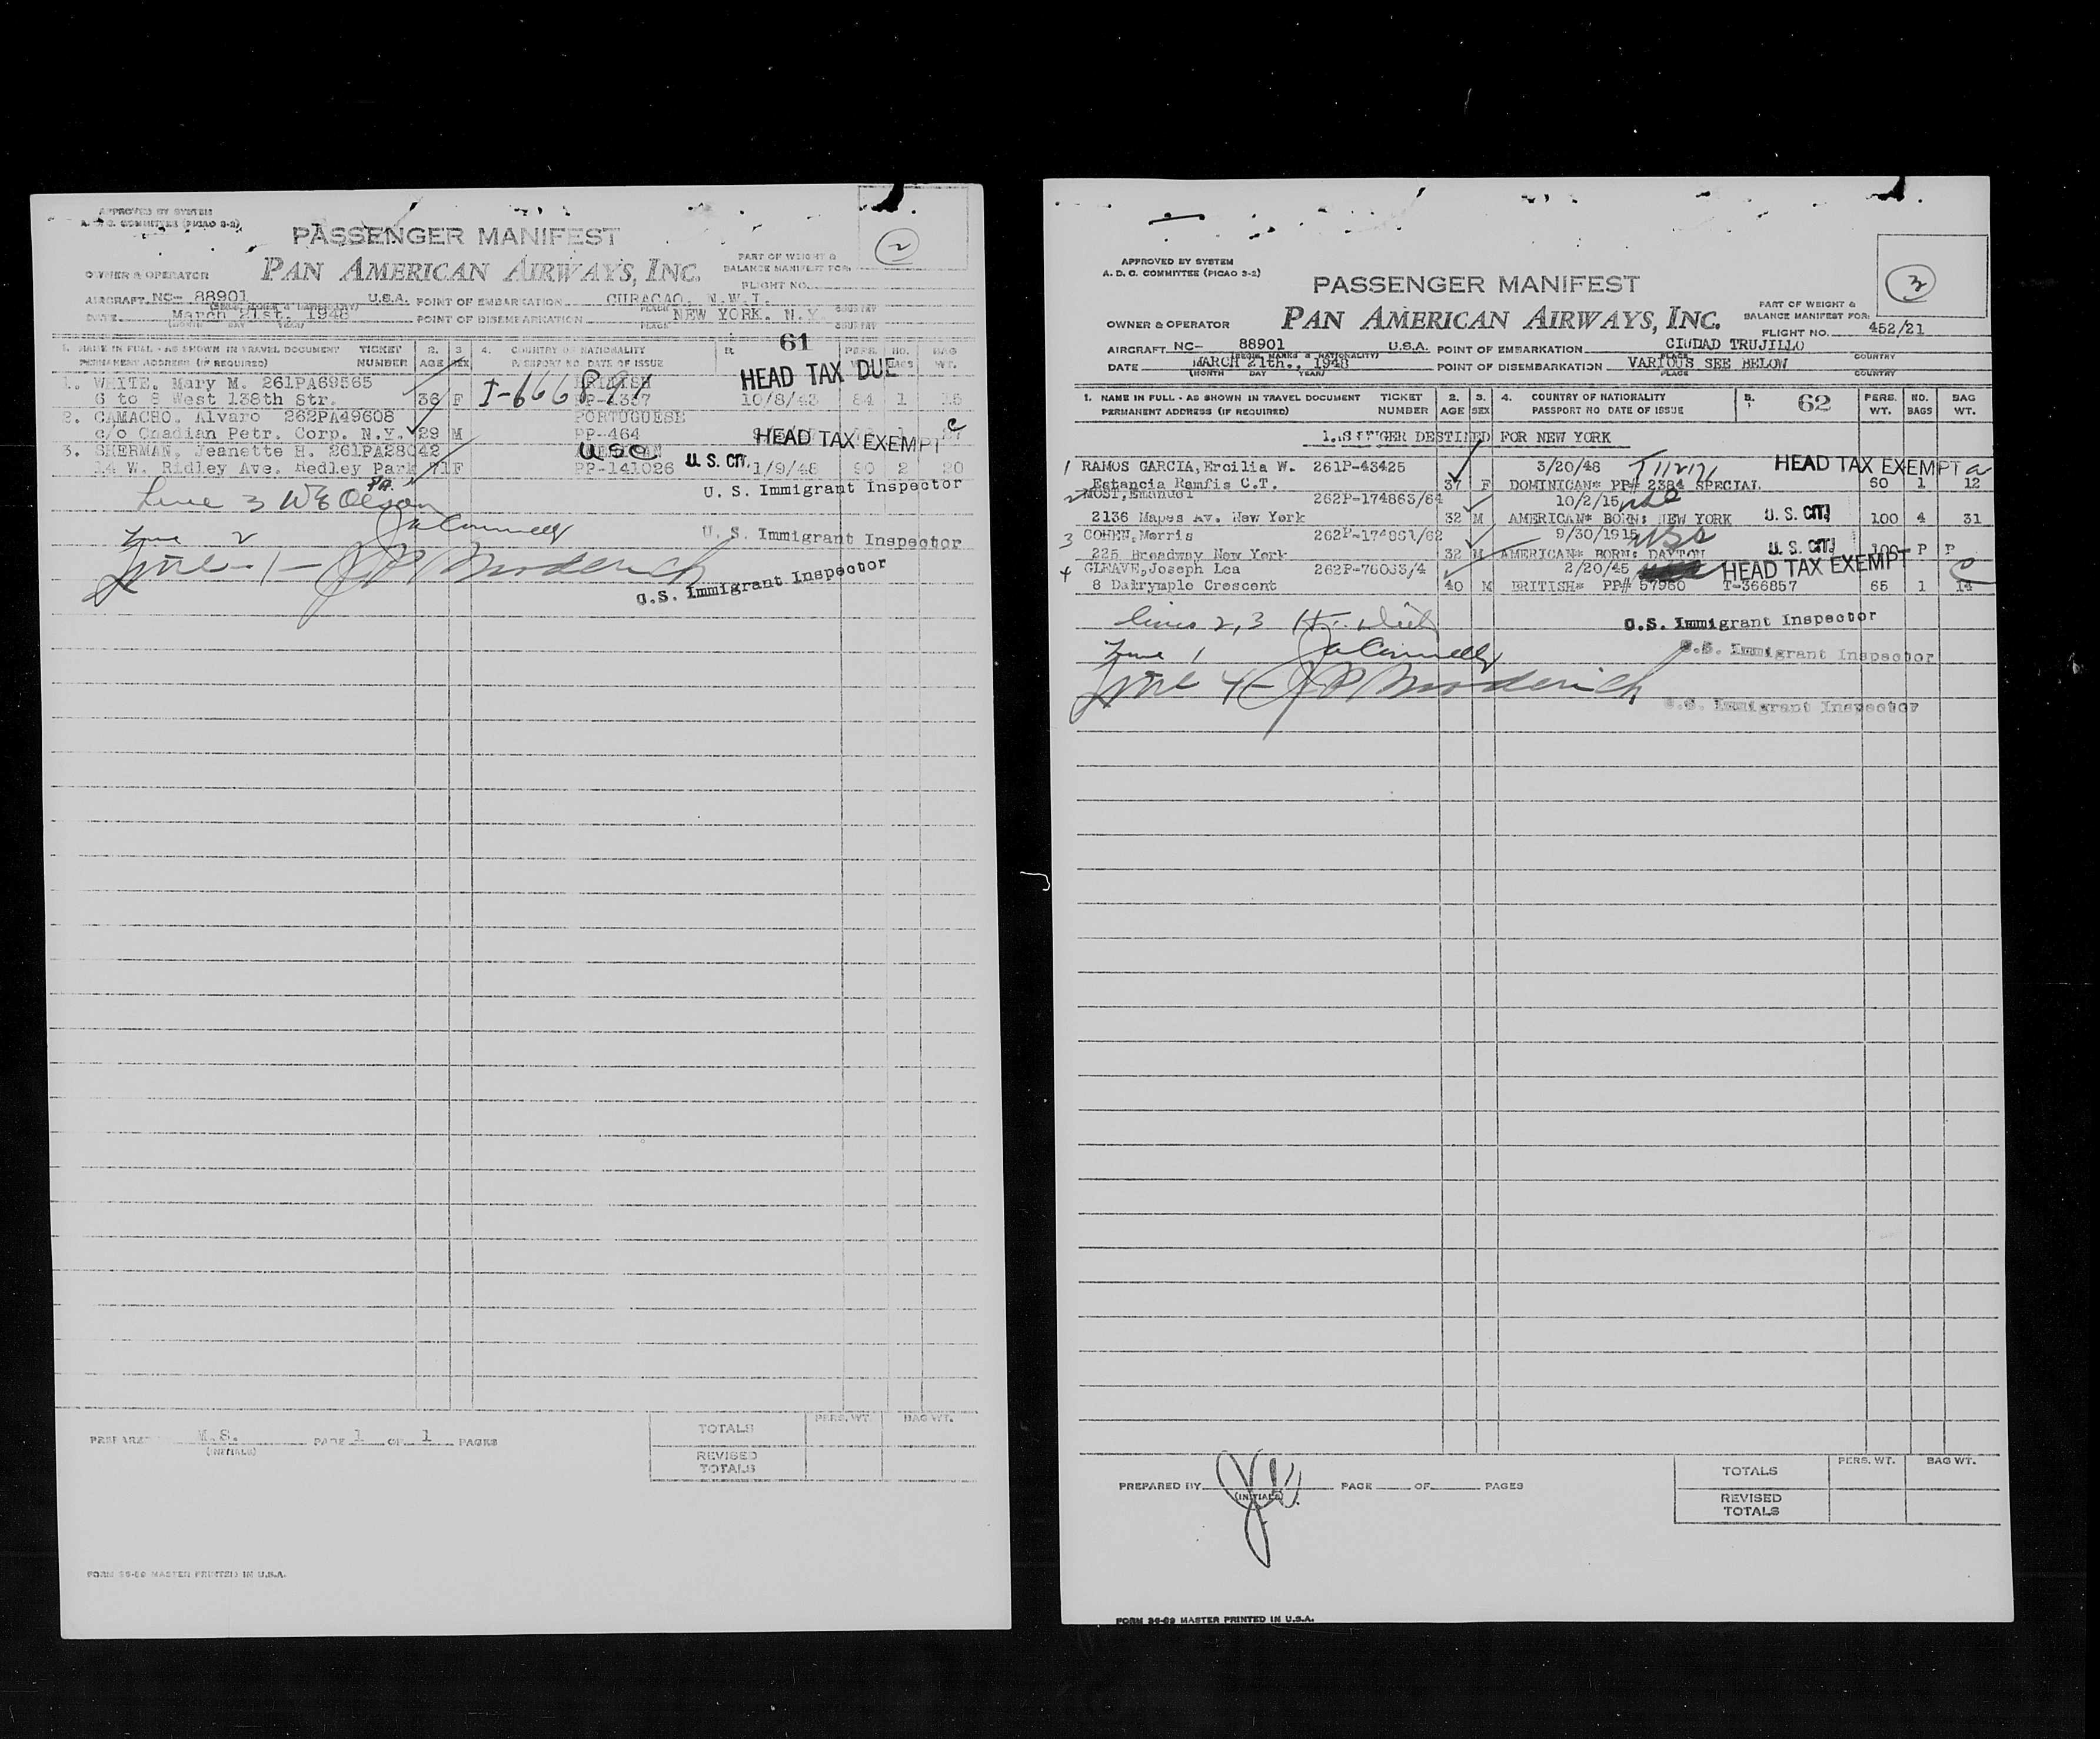 APPROVED BY SYSTEM
A. D. C. COMMITTEE (PICAO 3-2)
PASSENGER MANIFEST
2
OWNER & OPERATOR PAN AMERICAN AIRWAYS, INC.
PART OF WEIGHT &
BALANCE MANIFEST FOR:
FLIGHT NO.
AIRCRAFT NC- 88901 U.S.A. POINT OF EMBARKATION CURACAO. N.W.I.
DATE March 21st. 1948 POINT OF DISEMBARKATION NEW YORK. N.Y.
(MONTH DAY YEAR) PLACE COUNTRY
1. NAME IN FULL - AS SHOWN IN TRAVEL DOCUMENT TICKET 2. 3. 4. COUNTRY OF NATIONALITY 5. 61 PERS. NO. BAG
PERMANENT ADDRESS (IF REQUIRED) NUMBER AGE SEX PASSPORT NO. DATE OF ISSUE WT. BAGS WT.
HEAD TAX DUE
1. WHITE. Mary M. 261PA69565 BRITISH
6 to 8 West 138th Str. 36 F 10/8/43 84 1 15
2. CAMACHO. Alvaro 262PA49608 PORTUGUESE
c/o Cnadian Petr. Corp. N.Y. 29 M PP-464 HEAD TAX EXEMPT c
3. SHERMAN. Jeanette H. 261PA28042 USC
14 W. Ridley Ave. Redley Park 71 F PP-141026 U. S. CIT. 1/9/48 90 2 20
Pa.
Line 3 W E Olson U. S. Immigrant Inspector
Line 2 U. S. Immigrant Inspector
Line - 1 - U.S. Immigrant Inspector
PREPARED M.S. PAGE 1 OF 1 PAGES
(INITIALS)
PERS. WT. BAG WT.
TOTALS
REVISED
TOTALS
FORM 36-89 MASTER PRINTED IN U.S.A.
APPROVED BY SYSTEM
A. D. C. COMMITTEE (PICAO 3-2)
3
PASSENGER MANIFEST
OWNER & OPERATOR PAN AMERICAN AIRWAYS, INC.
PART OF WEIGHT &
BALANCE MANIFEST FOR:
FLIGHT NO. 452/21
AIRCRAFT NC- 88901 U.S.A. POINT OF EMBARKATION CIUDAD TRUJILLO
(REGIS. MARKS & NATIONALITY) PLACE COUNTRY
DATE MARCH 21th., 1948 POINT OF DISEMBARKATION VARIOUS SEE BELOW
(MONTH DAY YEAR) PLACE COUNTRY
1. NAME IN FULL - AS SHOWN IN TRAVEL DOCUMENT TICKET 2. 3. 4. COUNTRY OF NATIONALITY 5. 62 PERS. NO. BAG
PERMANENT ADDRESS (IF REQUIRED) NUMBER AGE SEX PASSPORT NO DATE OF ISSUE WT. BAGS WT.
DESTINED FOR NEW YORK
1 RAMOS GARCIA, Ercilia W. 261P-43425 3/20/48 HEAD TAX EXEMPT a
Estancia Ramfis C.T. 37 F DOMINICAN* PP# 2384 SPECIAL 60 1 12
2 MOST, Emanuel 262P-174863/64 10/2/15
2136 Mapes Av. New York 32 M AMERICAN* BORN: NEW YORK U. S. CIT. 100 4 31
3 COHEN, Morris 262P-174861/62 9/30/1915
225 Broadway New York 32 M AMERICAN* BORN: DAYTON U. S. CIT. 100 P P
4 GLEAVE, Joseph Lea 262P-76063/4 2/20/45 HEAD TAX EXEMPT c
8 Dalrymple Crescent 40 M BRITISH* PP# 57960 T-366857 65 1 14
lines 2, 3 U.S. Immigrant Inspector
Line 1 U.S. Immigrant Inspector
Line 4 - U.S. Immigrant Inspector
PREPARED BY PAGE OF PAGES
(INITIALS)
PERS. WT. BAG WT.
TOTALS
REVISED
TOTALS
FORM 36-89 MASTER PRINTED IN U.S.A.